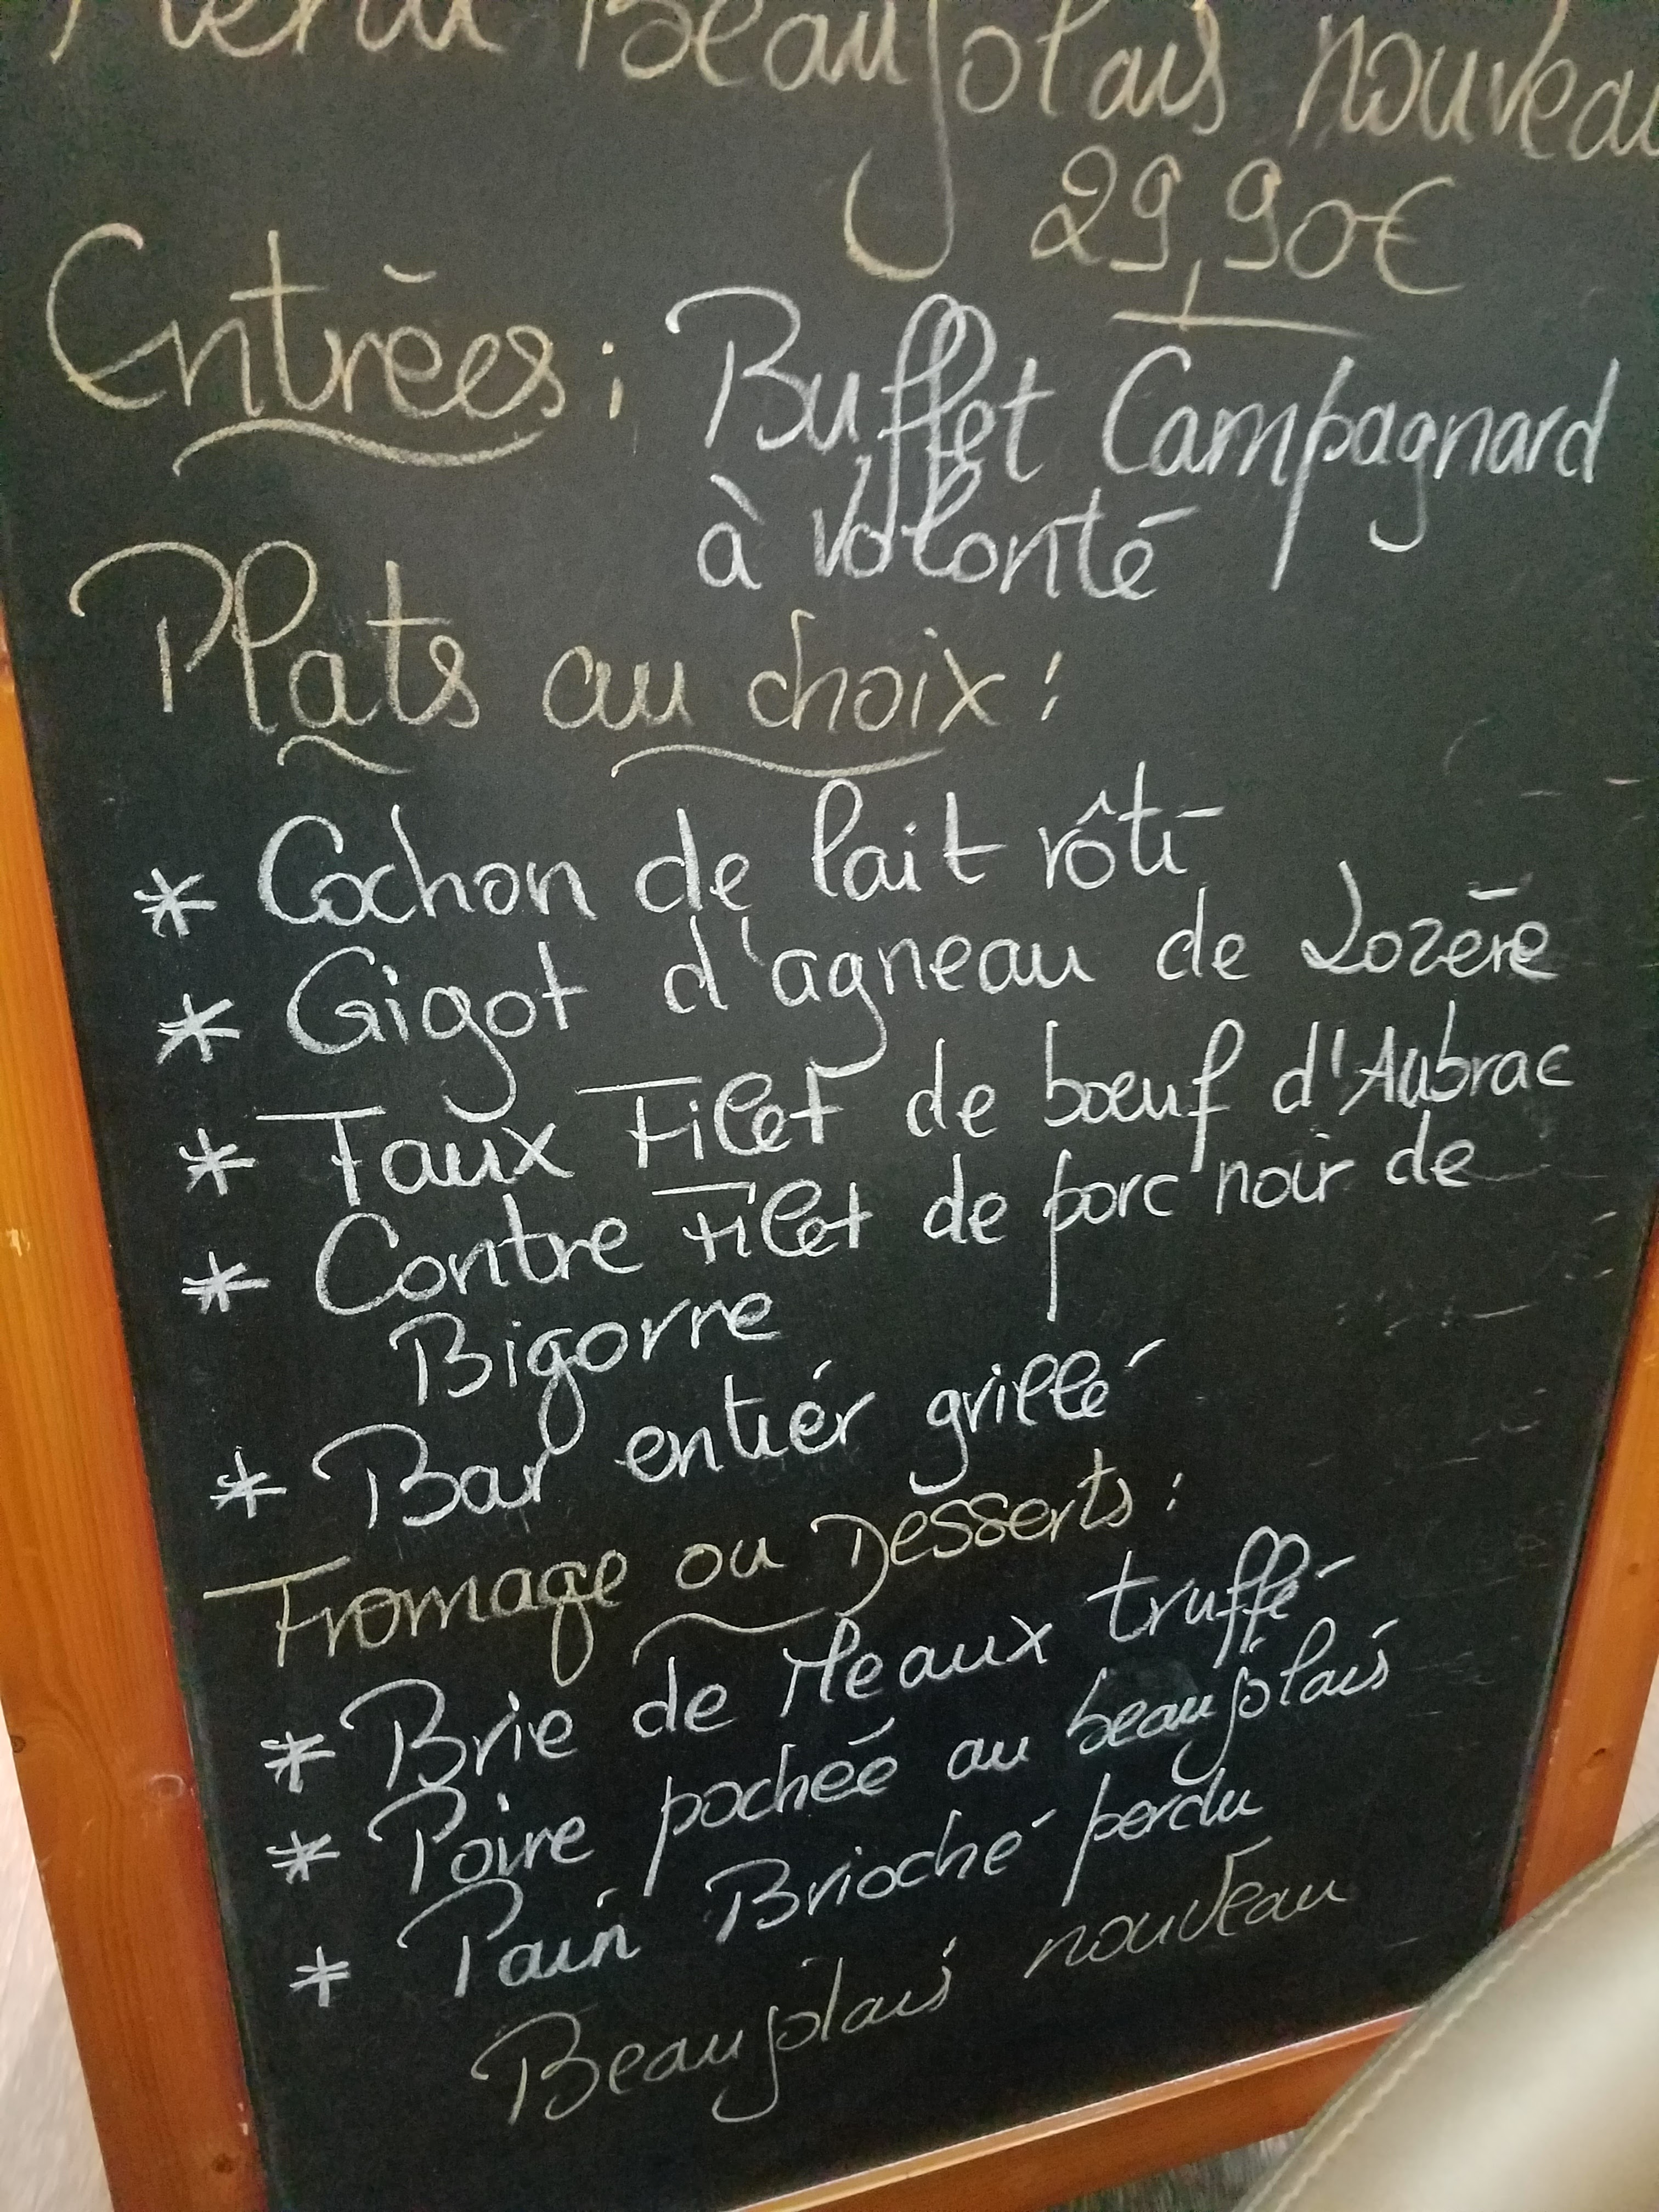 Menu Beaujolais nouveau
29,90€
Entrées : Buffet Campagnard
à volonté
Plats au choix :
* Cochon de lait rôti
* Gigot d'agneau de Lozère
* Faux Filet de bœuf d'Aubrac
* Contre Filet de porc noir de
Bigorre
* Bar entiér grillé
Fromage ou Desserts :
* Brie de Meaux truffé
* Poire pochée au beaujolais
* Pain Brioché perdu
Beaujolais nouveau